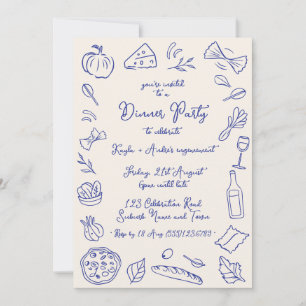 you're invited
to a
Dinner Party
to celebrate
Kayla + Andre's engagement
Friday, 21st August
6pm until late
123 Celebration Road
Suburb Name and Town
Rsvp by 18 Aug (555)1236789